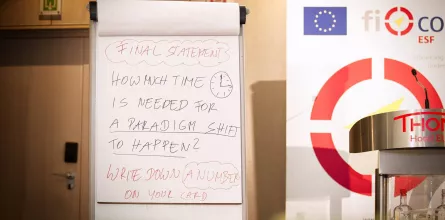 FINAL STATEMENT
HOW MUCH TIME
IS NEEDED FOR
A PARADIGM SHIFT
TO HAPPEN?
WRITE DOWN A NUMBER
ON YOUR CARD
fi co
ESF
THON